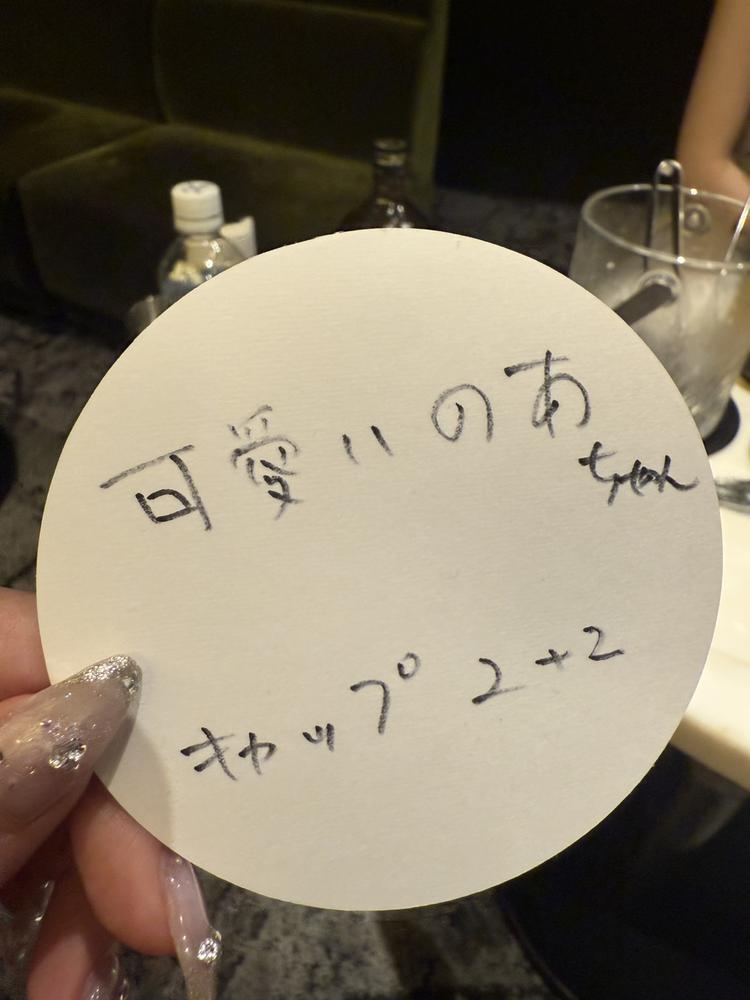 可愛いのあ
ちゃん
キャップ 2+2